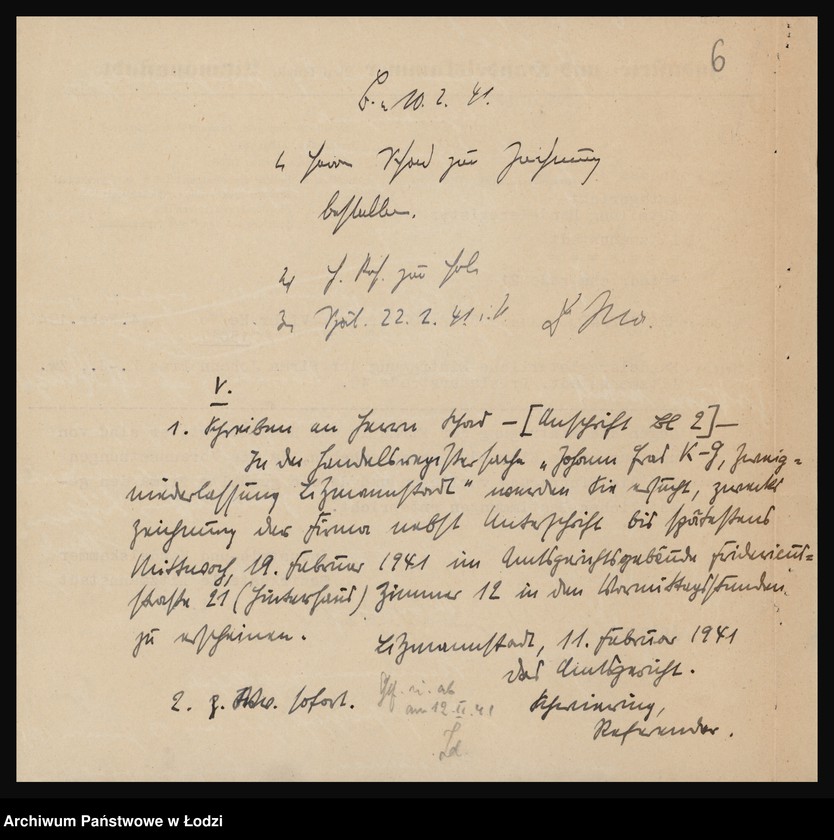 6
L., 10. 2. 41.
1, Herrn Schad zur Zeichnung
bestellen.
2, H. zur
3, Spät. 22. 2. 41. Dr
V.
1. Schreiben an Herrn Schad – [Anschrift Bl 2] –
In der Handelsregistersache „Johann Fras K-G, Zweig=
niederlassung Litzmannstadt" werden Sie ersucht, zwecks
Zeichnung der Firma nebst Unterschrift bis spätestens
Mittwoch, 19. Februar 1941 im Amtsgerichtsgebäude Fridericus=
straße 21 (Hinterhaus) Zimmer 12 in den Vormittagsstunden
zu erscheinen.
Litzmannstadt, 11. Februar 1941
Das Amtsgericht.
2. z. sofort.
Gef. u. ab
am 12. II. 41
Schwiering,
Referendar.
Archiwum Państwowe w Łodzi